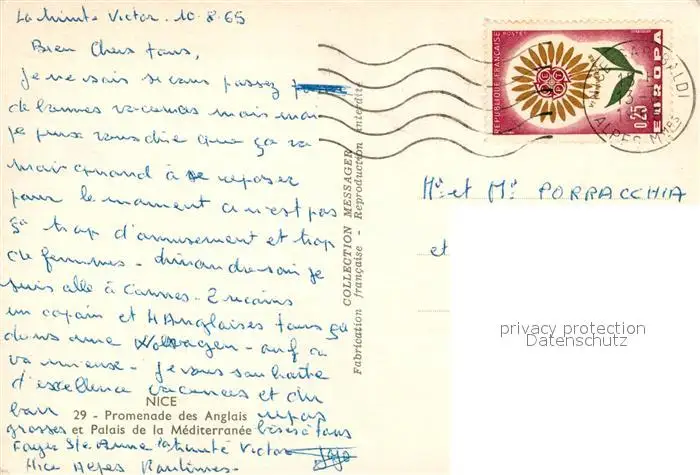 La trinité Victor. 10.8.65
Bien Chers tous,
je ne sais si vous passez
de bonnes vacances mais moi
je peux vous dire que ça va
mais quand à se reposer
pour le moment ce n'est pas
ça trop d'amusement et trop
de femmes - dimanche soir je
suis allé à Cannes -
un copain et 4 Anglaises tous ça
dans une Wolswagen - ouf ça
va mieux - je vous souhaite
d'excellence vacances et du
bon repos
grosses bises à tous
Foyer Ste Anne la trinité Victor
Nice Alpes Maritimes - Jojo
NICE
29 - Promenade des Anglais
et Palais de la Méditerranée
COLLECTION MESSAGER
Fabrication française - Reproduction interdite
REPUBLIQUE FRANÇAISE
POSTES
0,25
EUROPA
GARIBALDI
ALPES Mmes
Mr et Me PORRACCHIA
et
privacy protection
Datenschutz